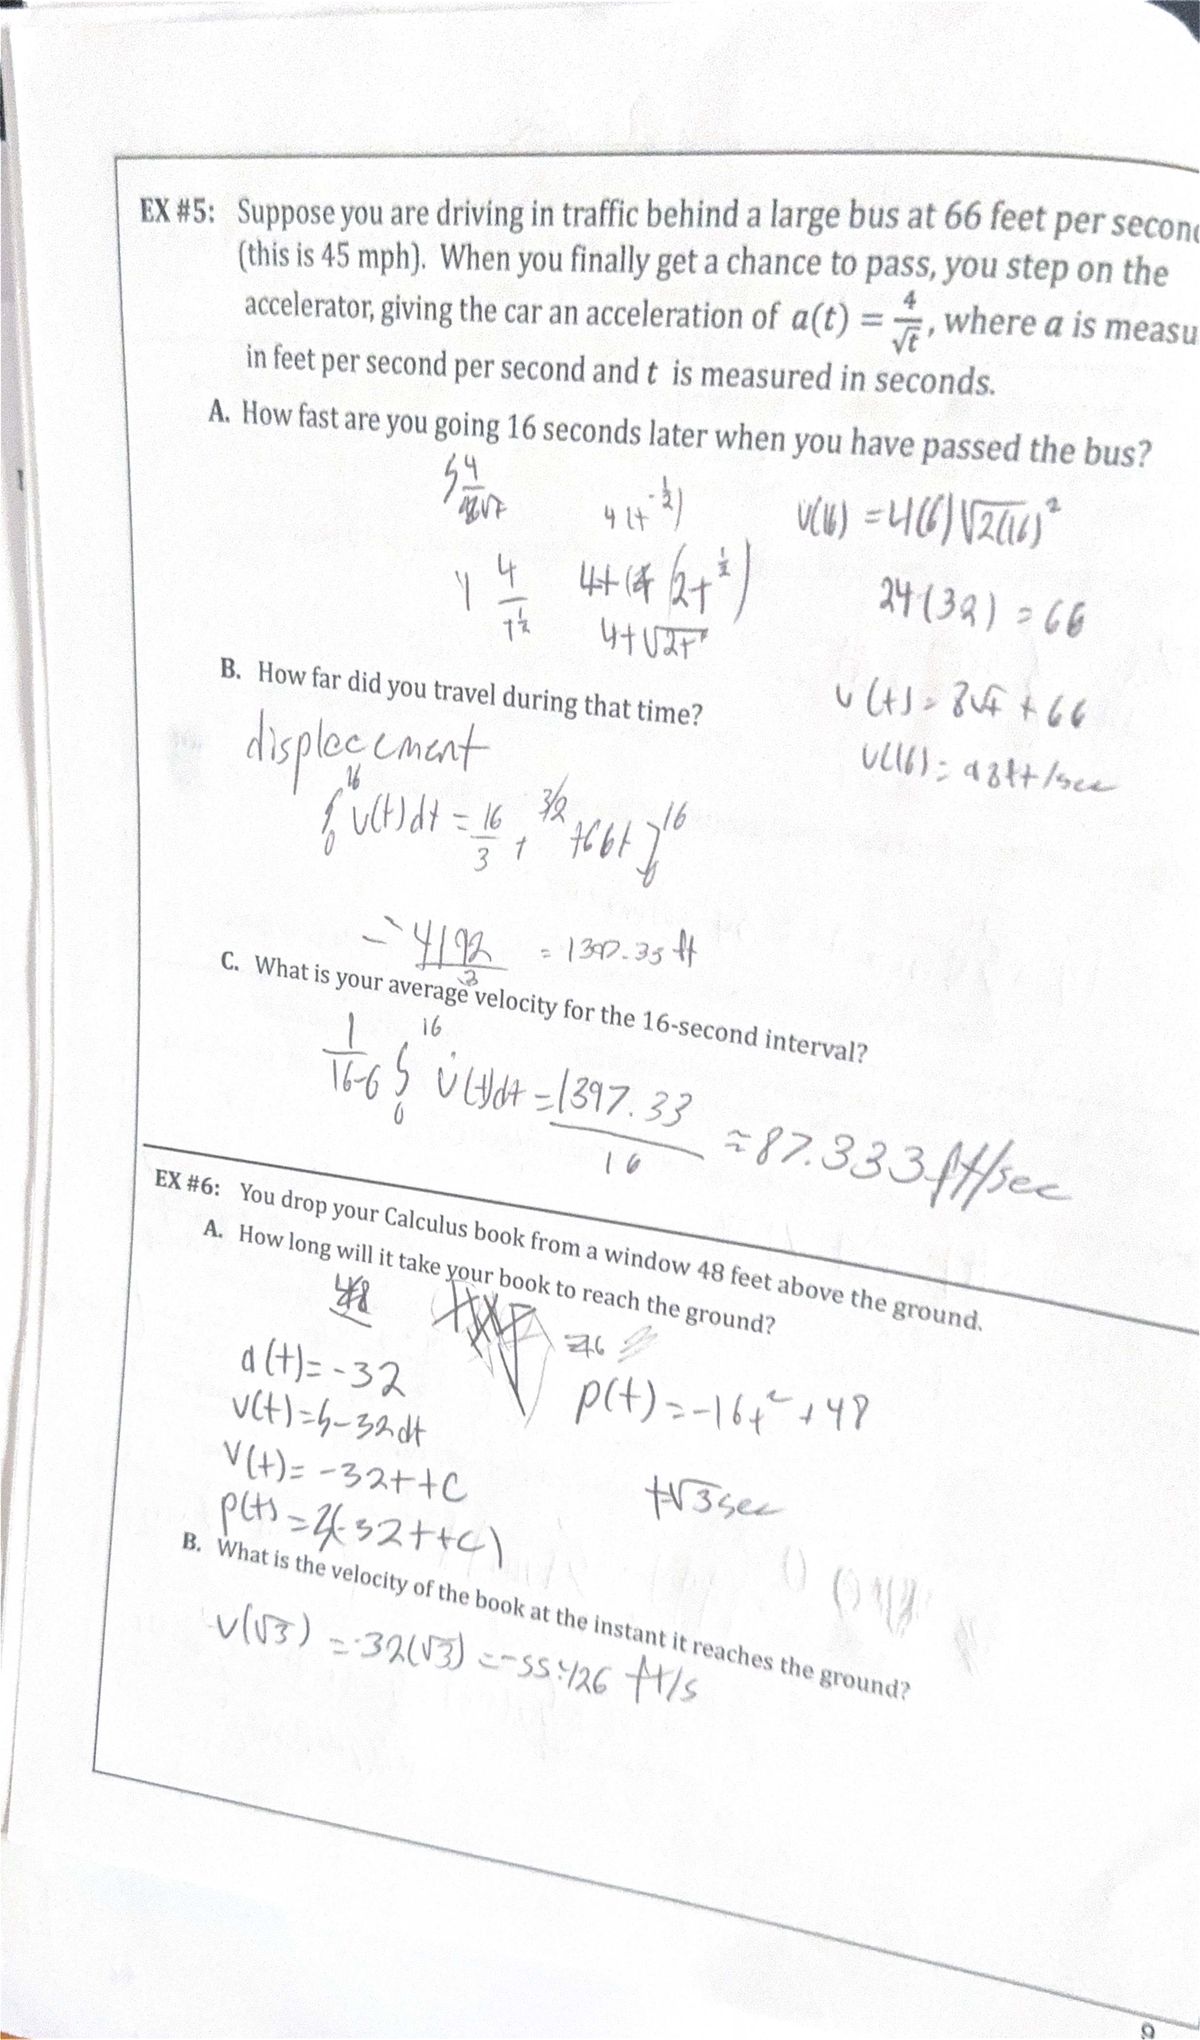 EX #5: Suppose you are driving in traffic behind a large bus at 66 feet per secon
(this is 45 mph). When you finally get a chance to pass, you step on the
accelerator, giving the car an acceleration of a(t) = 4/√t, where a is measu
in feet per second per second and t is measured in seconds.
A. How fast are you going 16 seconds later when you have passed the bus?
4(t^-1/2)
v(16) = 4(6)√2(16)²
4/t^1/2
24(32) = 66
4t√2t
B. How far did you travel during that time?
v(t) = 8√t + 66
v(16) = 98ft/sec
displacement
∫₀¹⁶ v(t)dt = 16/3 t^3/2 + 66t ]₀¹⁶
= 4192/3 = 1397.35 ft
C. What is your average velocity for the 16-second interval?
1/16-0 ∫₀¹⁶ v(t)dt = 1397.33/16 ≈ 87.333 ft/sec
EX #6: You drop your Calculus book from a window 48 feet above the ground.
A. How long will it take your book to reach the ground?
48
a(t) = -32
p(t) = -16t² + 48
v(t) = ∫-32dt
v(t) = -32t + C
t√3 sec
p(t) = ∫(-32t + C)
B. What is the velocity of the book at the instant it reaches the ground?
v(√3) = -32(√3) = -55.426 ft/s
9